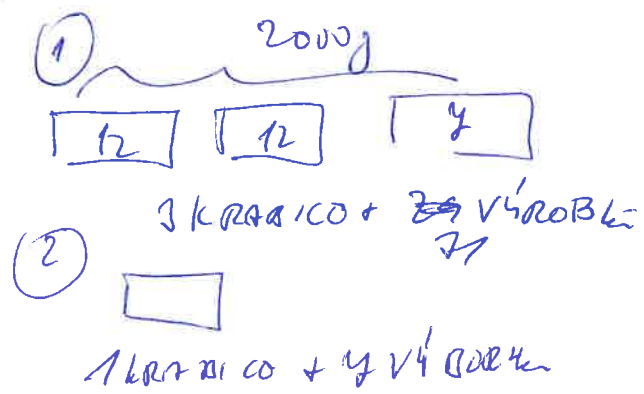 1 2000g
12 12 y
3 KRABICO + VÝROBKů
31
2
1 KRABICO + y VÝROBKů